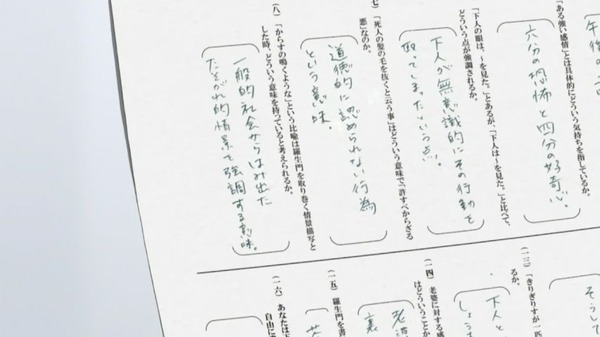 午後の
「ある強い感情」とは具体的にどういう気持ちを指しているか。
六分の恐怖と四分の好奇心。
「下人の眼は、～を見た。」とあるが、「下人は～を見た。」と比べて、
どういう点が強調されるか。
下人が無意識的にその行動を
取ってしまったという点。
七）「死人の髪の毛を抜くと云う事」はどういう意味で、「許すべからざる
悪」なのか。
道徳的に認められない行為
という意味。
（八）「からすの鳴くような」という比喩は羅生門を取り巻く情景描写と
した時、どういう意味を持っていると考えられるか。
一般的社会からはみ出た
たそがれ的情景で強調する意味。
そうして
（一三）「きりぎりすが一匹
るか。
下人と
（一四）老婆に対する感
はどういうことか
裏
（一五）羅生門を書
（一六）あなたは下
自由に